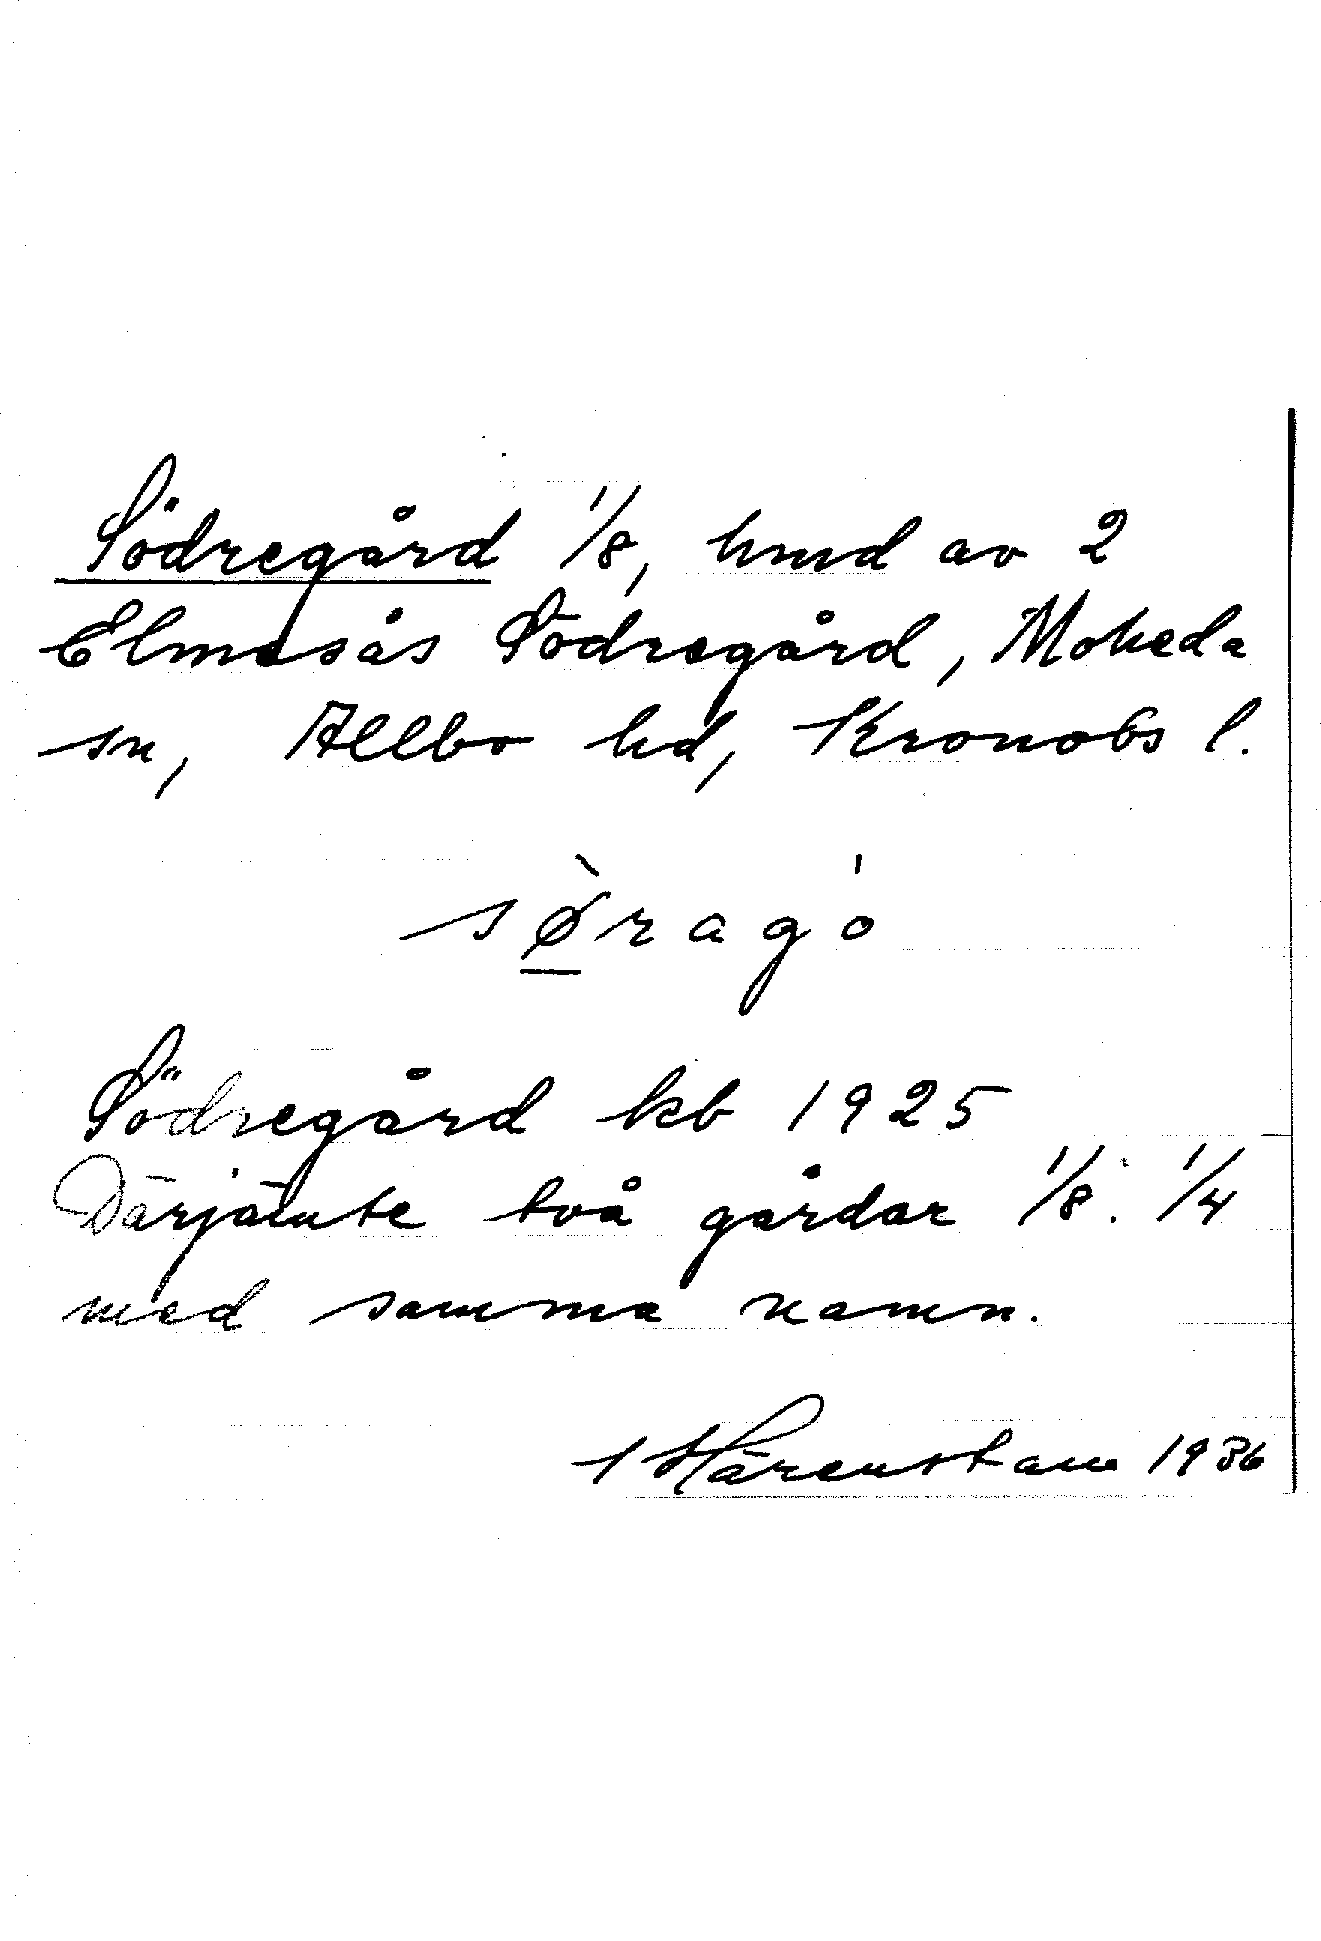 Södregård 1/8, hmd av 2
Elmesås Södregård, Moheda
sn, Allbo hd, Kronobs l.
sø̀ragó
Södregård kb 1925
Därjämte två gårdar 1/8. 1/4
med samma namn.
S Härenstam 1936